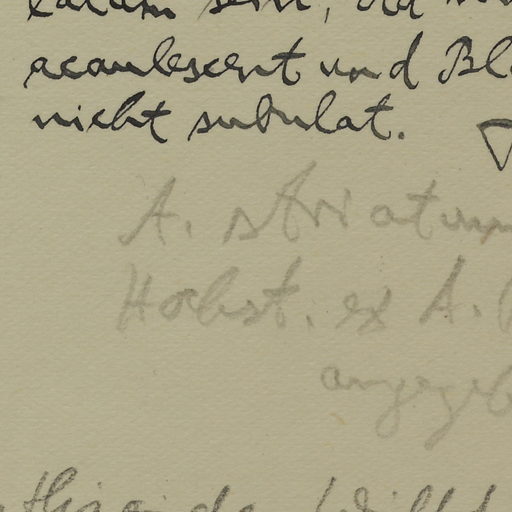 sein, da
acaulescent und Bl
nicht subulat.
A. striatum
Hochst. ex A.
angegeb